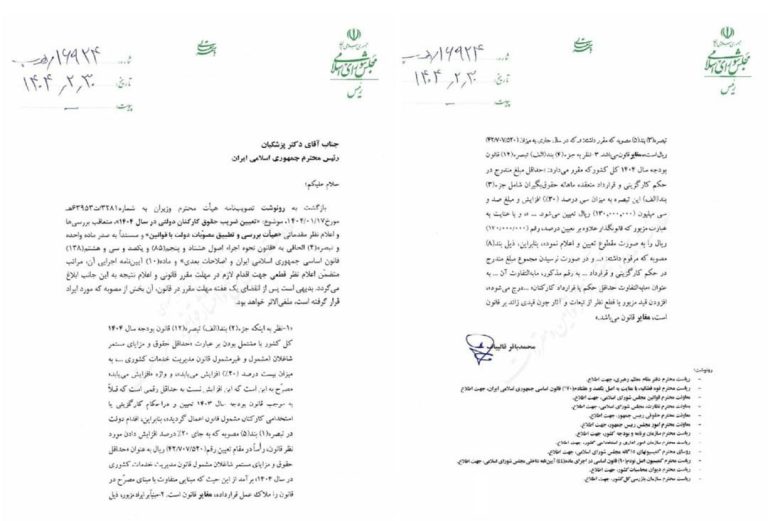 جمهوری اسلامی ایران
مجلس شورای اسلامی
رئیس
شماره: ۱۶۹۲۴
تاریخ: ۱۴۰۴٫۲٫۳۰
پیوست:
جناب آقای دکتر پزشکیان
رئیس محترم جمهوری اسلامی ایران
سلام علیکم؛
بازگشت به رونوشت تصویب‌نامه هیأت محترم وزیران به شماره۳۲۸۱/ت۶۳۹۵۳هـ
مورخ۱۴۰۴/۰۱/۱۷، موضوع: «تعیین ضریب حقوق کارکنان دولتی در سال ۱۴۰۴»، متعاقب بررسی‌ها
و اعلام نظر مقدماتی «هیأت بررسی و تطبیق مصوبات دولت با قوانین» و مستنداً به صدر ماده واحده
و تبصره(۴) الحاقی به «قانون نحوه اجراء اصول هشتاد و پنجم(۸۵) و یکصد و سی و هشتم(۱۳۸)
قانون اساسی جمهوری اسلامی ایران و اصلاحات بعدی» و ماده(۱۰) آیین‌نامه اجرایی آن، مراتب
متضمن اعلام نظر قطعی جهت اقدام لازم در مهلت مقرر قانونی و اعلام نتیجه به این جانب ابلاغ
می‌گردد. بدیهی است پس از انقضای یک هفته مهلت مقرر در قانون، آن بخش از مصوبه که مورد ایراد
قرار گرفته است، ملغی‌الاثر خواهد بود.
«۱-نظر به اینکه جزء(۲) بند(الف) تبصره(۱۲) قانون بودجه سال ۱۴۰۴
کل کشور با مشتمل بودن بر عبارت «حداقل حقوق و مزایای مستمر
شاغلان (مشمول و غیرمشمول قانون مدیریت خدمات کشوری ... به
میزان بیست درصد (۲۰٪) افزایش می‌یابد»، و واژه «افزایش می‌یابد»
مصرّح به این است که این افزایش نسبت به حداقل رقمی است که قبلاً
به موجب قانون بودجه سال ۱۴۰۳ تعیین و در احکام کارگزینی یا
استخدامی کارکنان مشمول قانون اعمال گردیده، بنابراین، اقدام دولت
در تبصره(۱) بند(۵) مصوبه که به جای ۲۰٪ درصد افزایش دادن مورد
نظر قانون، رأساً در مقام تعیین رقم(۴۲/۷۰۷/۵۲۰) ریال به عنوان «حداقل
حقوق و مزایای مستمر شاغلان مشمول قانون مدیریت خدمات کشوری
در سال ۱۴۰۴» برآمده از این حیث که مبنایی متفاوت با مبنای مصرّح در
قانون را ملاک عمل قرارداده، مغایر قانون است. ۲-مبنیاً بر ایراد مزبور، ذیل
جمهوری اسلامی ایران
مجلس شورای اسلامی
رئیس
شماره: ۱۶۹۲۴
تاریخ: ۱۴۰۴٫۲٫۳۰
پیوست:
تبصره(۳) بند(۵) مصوبه که مقرر داشته: در سال جاری به میزان (۴۲/۷۰۷/۵۲۰)
ریال است، مغایر قانون می‌باشد. ۳- نظر به جزء(۴) بند(الف) تبصره(۱۲) قانون
بودجه سال ۱۴۰۴ کل کشور که مقرر می‌دارد: «حداقل مبلغ مندرج در
حکم کارگزینی و قرارداد منعقده ماهانه حقوق‌بگیران شامل جزء(۳)
بند(الف) این تبصره به میزان سی درصد (۳۰٪) افزایش و مبلغ صد و
سی میلیون (۱۳۰,۰۰۰,۰۰۰) ریال تعیین می‌شود. ... »، و با عنایت به
عبارت مزبور که قانونگذار علاوه بر تعیین درصد، رقم (۱۳۰/۰۰۰/۰۰۰)
ریال را به صورت مقطوع تعیین و اعلام نموده، بنابراین، ذیل بند(۸)
مصوبه که مرقوم داشته: «... و در صورت نرسیدن مجموع مبلغ مندرج
در حکم کارگزینی و قرارداد ... به رقم مذکور، مابه‌التفاوت آن ... به
عنوان «مابه‌التفاوت حداقل حکم یا قرارداد کارکنان» ... درج می‌شود»،
افزودن قید مزبور با قطع نظر از تبعات و آثار چون قیدی زائد بر قانون
است، مغایر قانون می‌باشد.»
محمدباقر قالیباف
رونوشت:
- ریاست محترم دفتر مقام معظم رهبری، جهت اطلاع.
- ریاست محترم قوه قضائیه، با عنایت به اصل یکصد و هفتادم(۱۷۰) قانون اساسی جمهوری اسلامی ایران، جهت اطلاع.
- معاونت محترم قوانین مجلس شورای اسلامی، جهت اطلاع.
- معاونت محترم نظارت مجلس شورای اسلامی، جهت اطلاع.
- معاونت محترم حقوقی رئیس جمهور، جهت اطلاع.
- معاونت محترم امور مجلس رئیس جمهور، جهت اطلاع.
- ریاست محترم سازمان برنامه و بودجه کشور، جهت اطلاع.
- ریاست محترم سازمان امور اداری و استخدامی کشور، جهت اطلاع.
- رؤسای محترم کمیسیونهای مجلس شورای اسلامی، جهت اطلاع.
- ریاست محترم دیوان محاسبات کشور، جهت اطلاع.
- ریاست محترم سازمان بازرسی کل کشور، جهت اطلاع.